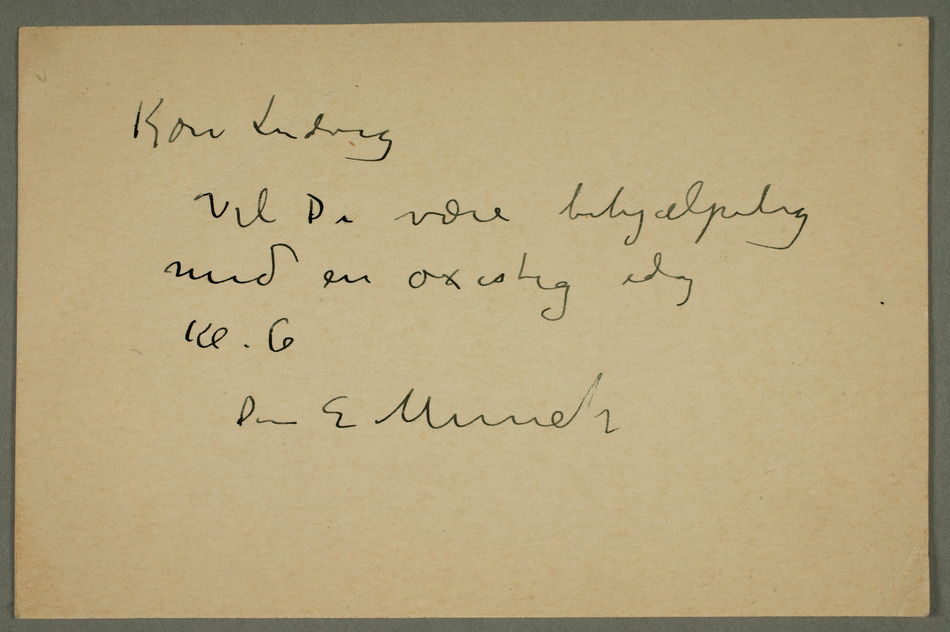 Kære Ludvig
Vil De være behjælpelig
med en oxesteg idag
Kl. 6
Den E Munch